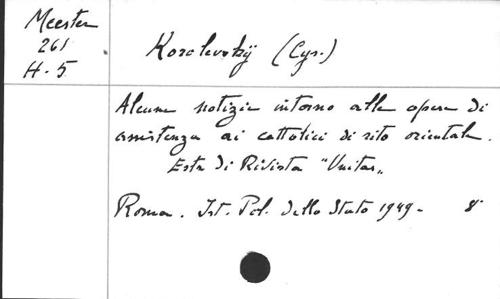 Meester
261
H. 5
Korolevskij (Cyr.)
Alcune notizie intorno alle opere di
assistenza ai cattolici di rito orientale.
Estr. di Rivista "Unitas„
Roma. Ist. Pol. dello Stato 1949 - 8°